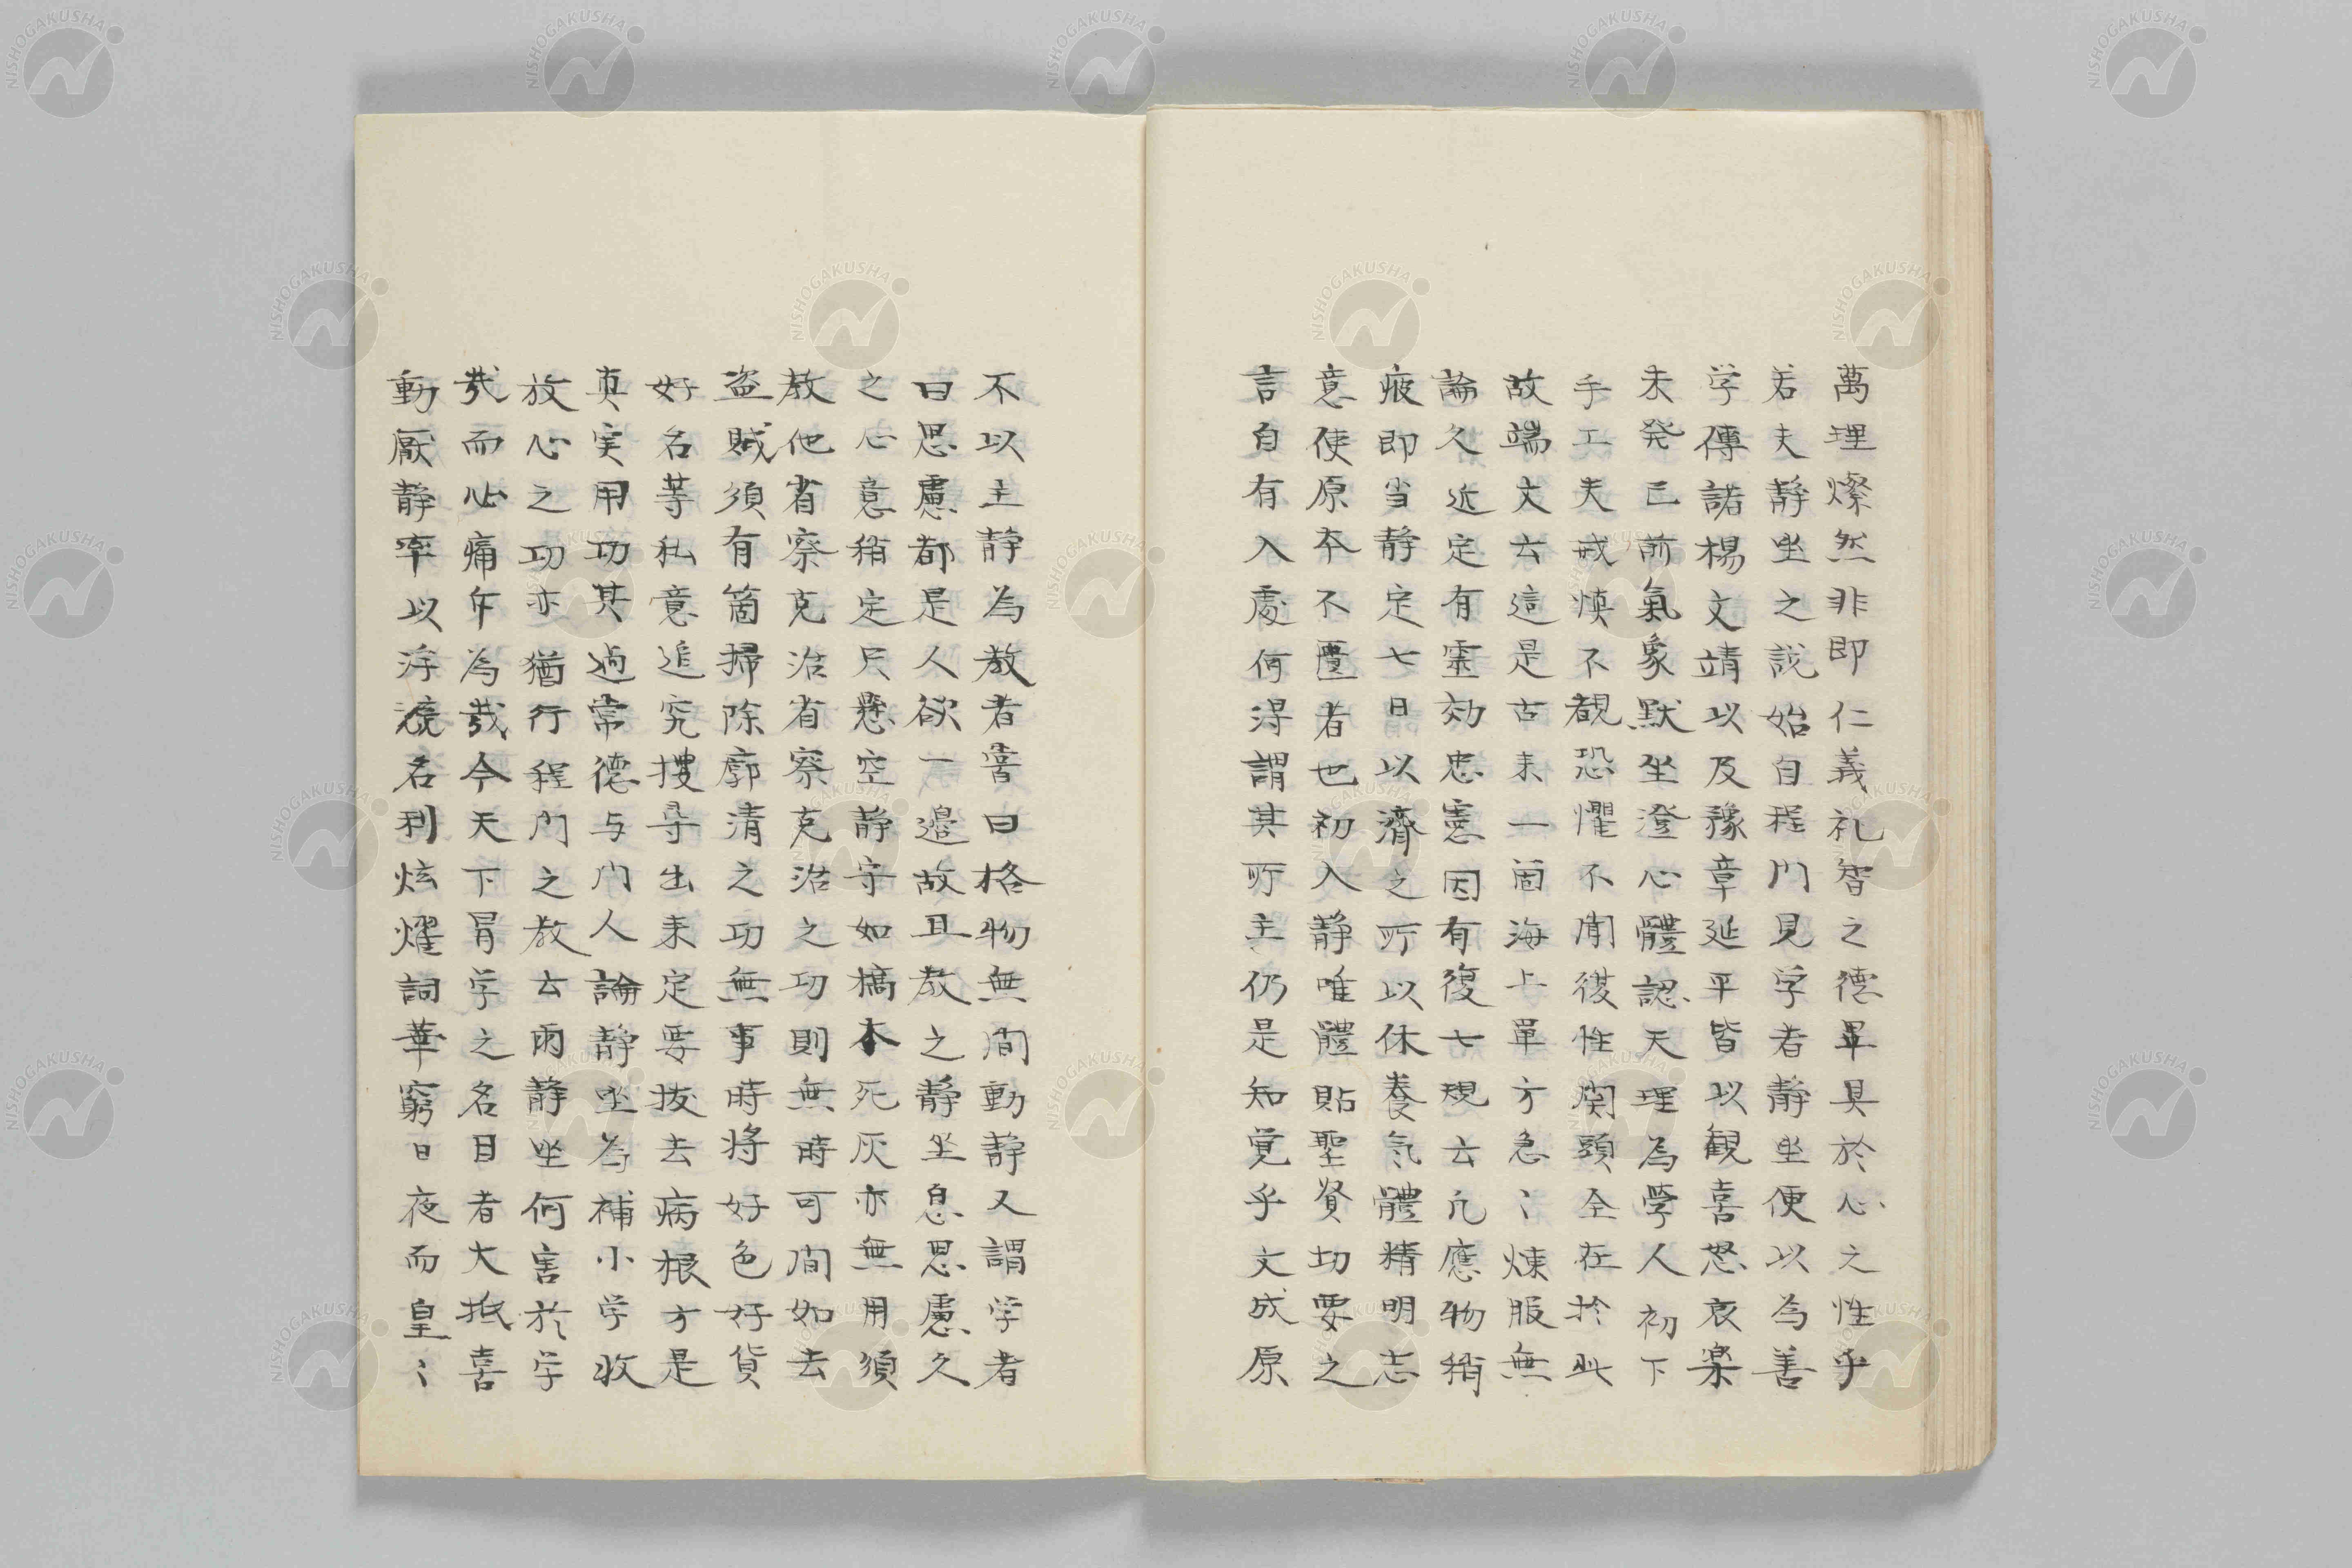 萬理燦然非即仁義礼智之德畢具於心之性乎
若夫静坐之説始自程門見学者静坐便以為善
学傳諸楊文靖以及豫章延平皆以観喜怒哀楽
未発已前氣象默坐澄心體認天理為學人初下
手工夫戒慎不覩恐懼不聞復性関頭全在於此
故端文云這是古来一箇海上單方急〻煉服無
論久近定有霊効忠憲因有復七規云凡應物稍
疲即当静定七日以濟之所以休養氣體精明志
意使原本不匱者也初入静唯體貼聖賢切要之
言自有入處何得謂其所主仍是知覚乎文成原
不以主静為教者嘗曰格物無間動静又謂学者
曰思慮都是人欲一邉故且教之静坐息思慮久
之心意稍定只懸空静守如槁木死灰亦無用須
教他省察克治省察克治之功則無時可間如去
盗賊須有箇掃除廓清之功無事時将好色好貨
好名等私意追究搜尋出来定要抜去病根方是
真実用功其過常德与門人論静坐為補小学收
放心之功亦猶行程門之教云爾静坐何害於学
哉而必痛斥為哉今天下冐学之名目者大抵喜
動厭静率以浮競名利炫燿詞華窮日夜而皇〻
NISHOGAKUSHA